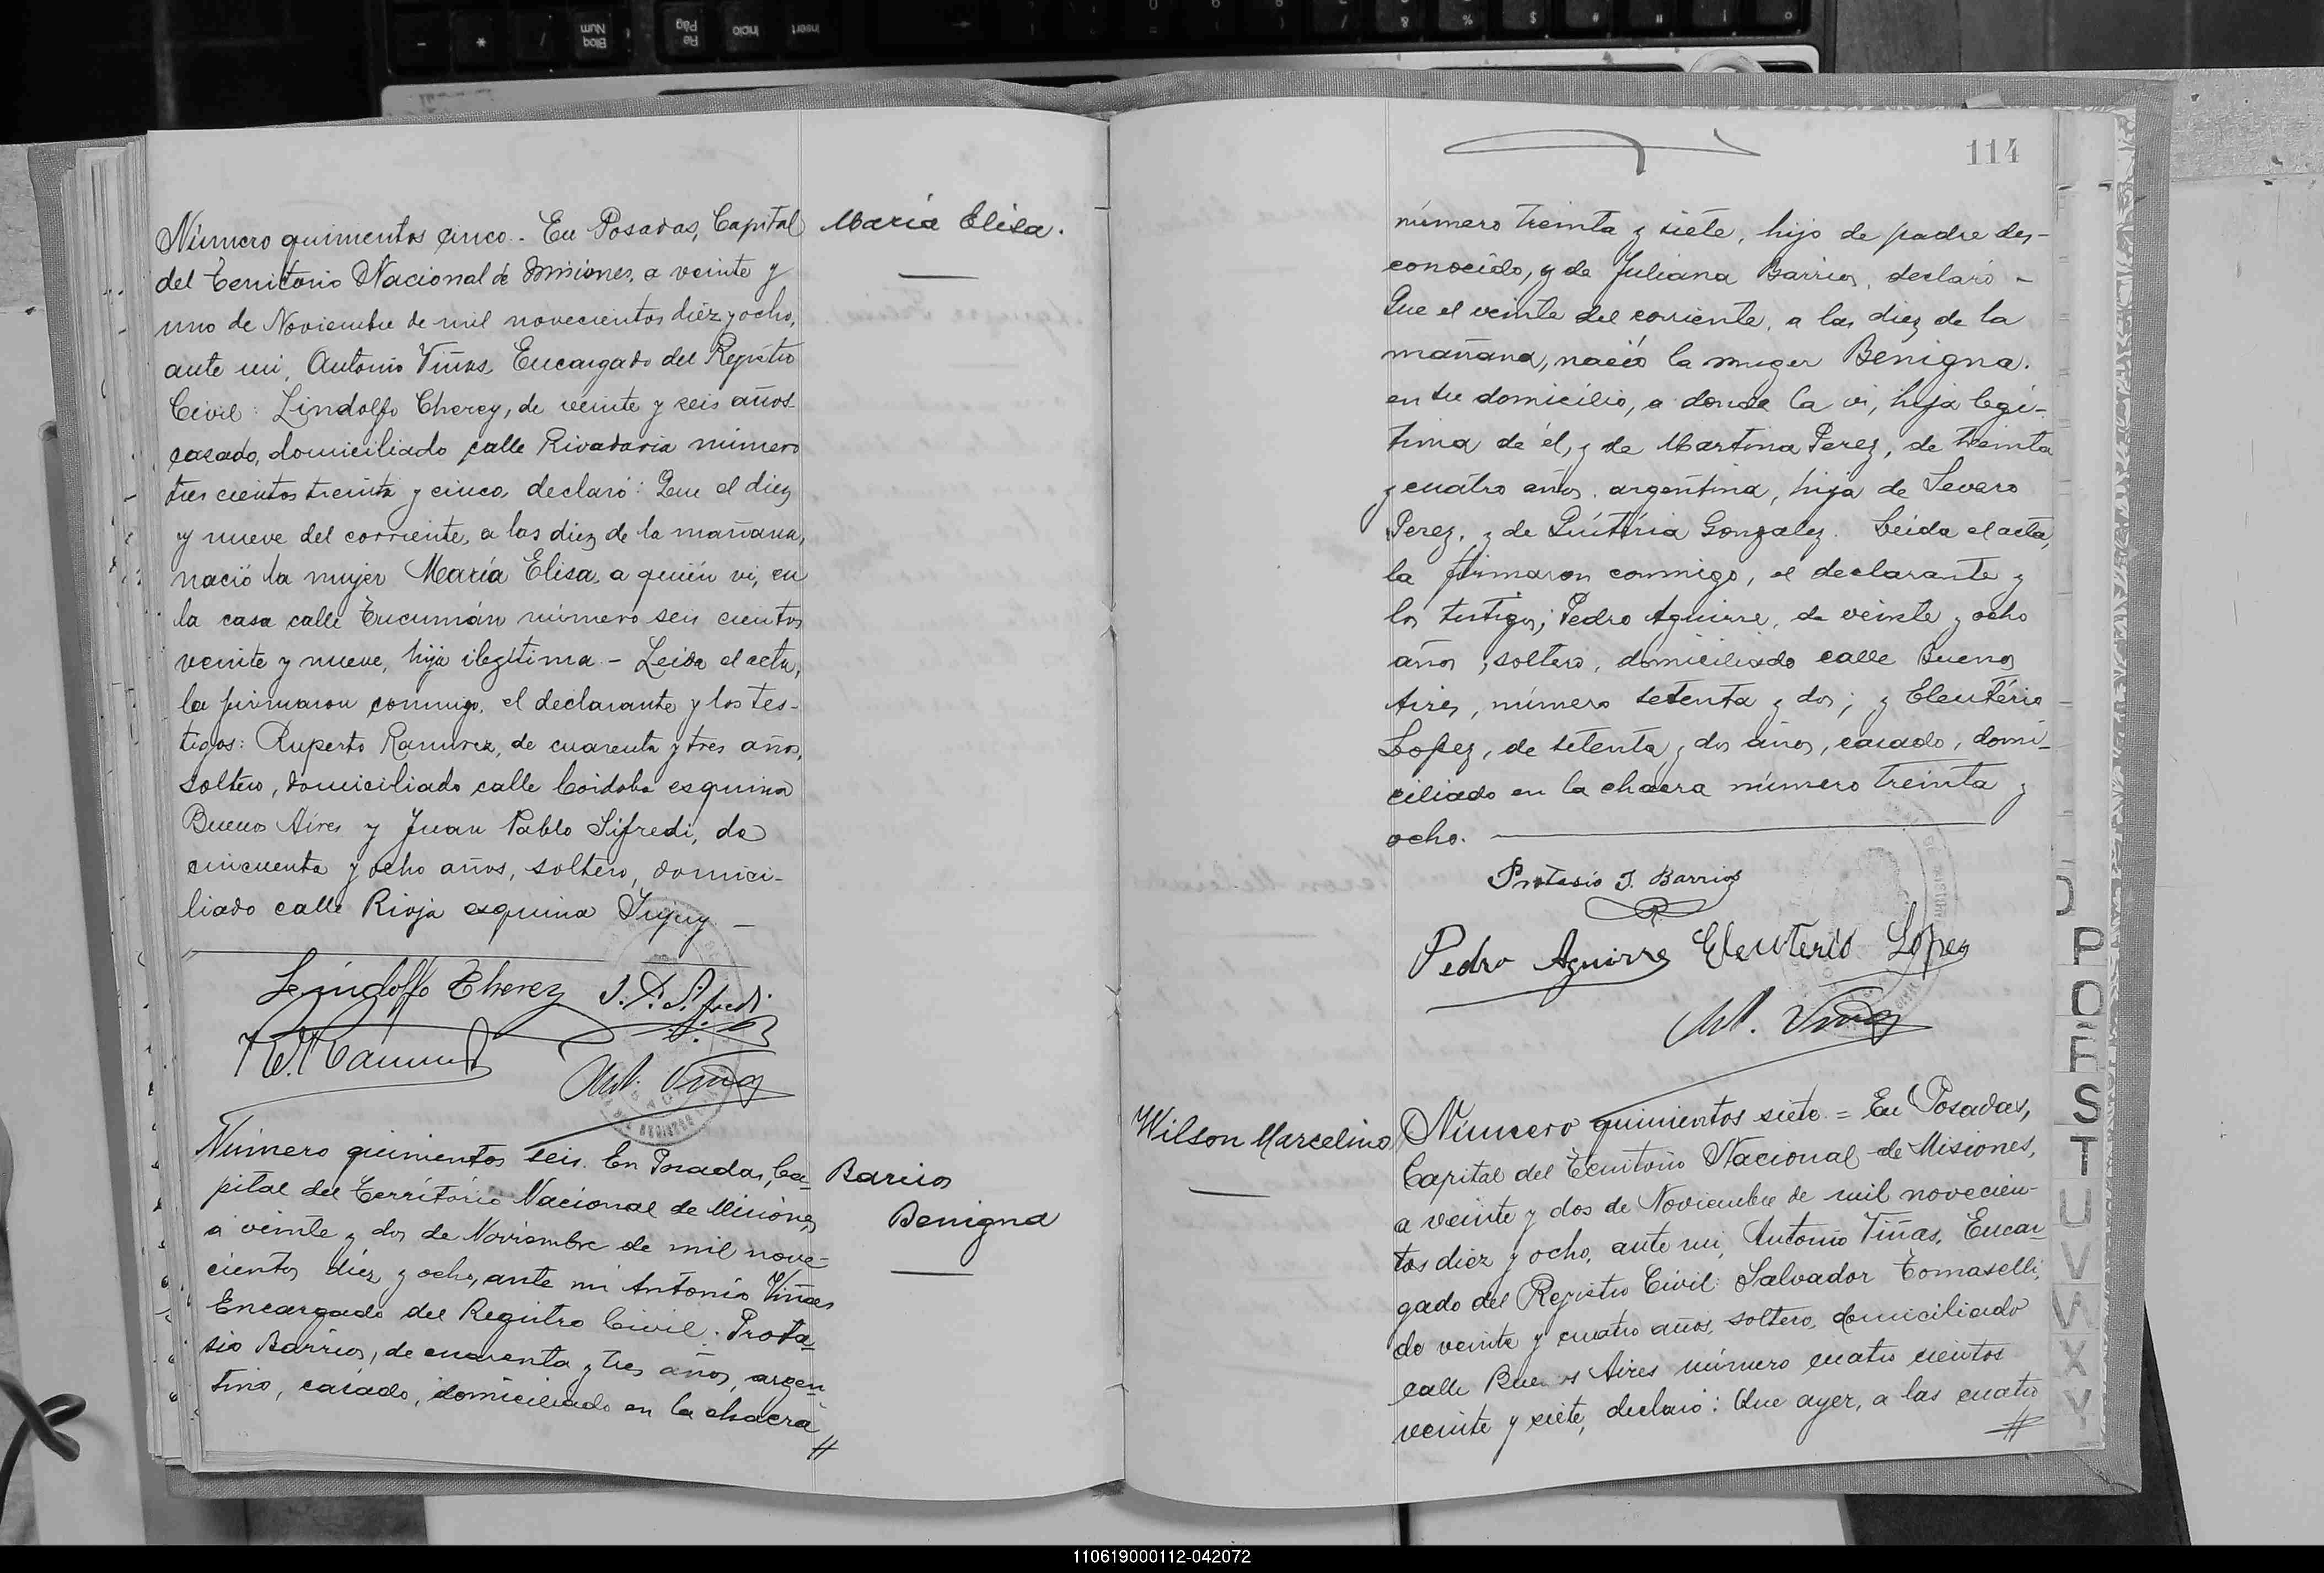 María Elisa.
Número quinientos cinco. - En Posadas, Capital
del Territorio Nacional de Misiones, a veinte y
uno de Noviembre de mil novecientos diez y ocho,
ante mi, Antonio Viñas, Encargado del Registro
Civil: Lindolfo Cherez, de veinte y seis años
casado, domiciliado calle Rivadavia número
tres cientos treinta y cinco, declaró: Que el diez
y nueve del corriente, a las diez de la mañana,
nació la mujer María Elisa, a quién vi, en
la casa calle Tucumán número seis cientos
veinte y nueve, hija ilegítima. - Leida el acta,
la firmaron conmigo, el declarante y los tes-
tigos: Ruperto Ramirez, de cuarenta y tres años,
soltero, domiciliado calle Córdoba esquina
Buenos Aires y Juan Pablo Sifredi, de
cincuenta y ocho años, soltero, domici-
liado calle Rioja esquina Jujuy —
Lindolfo Cherez J. P. Sifredi
R. Ramirez
Ant. Viñas
Barrios
Benigna
Número quinientos seis. En Posadas, Ca-
pital del Territorio Nacional de Misiones
a veinte y dos de Noviembre de mil nove-
cientos diez y ocho, ante mi Antonio Viñas
Encargado del Registro Civil. Prota-
sio Barrios, de cuarenta y tres años, argen-
tino, casado, domiciliado en la chacra
//
114
número treinta y siete, hijo de padre des-
conocido, y de Juliana Barrios, declaró -
Que el veinte del corriente, a las diez de la
mañana, nació la muger Benigna.
en su domicilio, a donde la vi, hija legi-
tima de él, y de Martina Perez, de treinta
y cuatro años, argentina, hija de Severo
Perez, y de Quitéria Gonzalez. Leida el acta,
la firmaron conmigo, el declarante y
los testigos; Pedro Aguirre, de veinte y ocho
años, soltero, domiciliado calle Buenos
Aires, número setenta y dos; y Eleutério
Lopez, de setenta y dos años, casado, domi-
ciliado en la chacra número treinta y
ocho.
Protasio J. Barrios
Pedro Aguirre Eleuterio Lopez
Ant. Viñas
Wilson Marcelino
Número quinientos siete = En Posadas,
Capital del Territorio Nacional de Misiones,
a veinte y dos de Noviembre de mil novecien-
tos diez y ocho, ante mi, Antonio Viñas, Encar-
gado del Registro Civil: Salvador Tomaselli,
de veinte y cuatro años, soltero, domiciliado
calle Buenos Aires número cuatro cientos
veinte y siete, declaró: Que ayer, a las cuatro
//
P
Q
R
S
T
U
V
W
X
Y
110619000112-042072